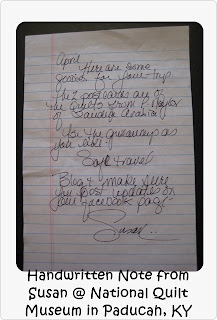 April
Here are some
goodies for your trip.
The 2 postcards are of
the quilts from
of Saudia Arabia
You the giveaway as
you like.
Safe travel
Blog & make sure
you post updates on
your facebook page
Susan
Handwritten Note from
Susan @ National Quilt
Museum in Paducah, KY